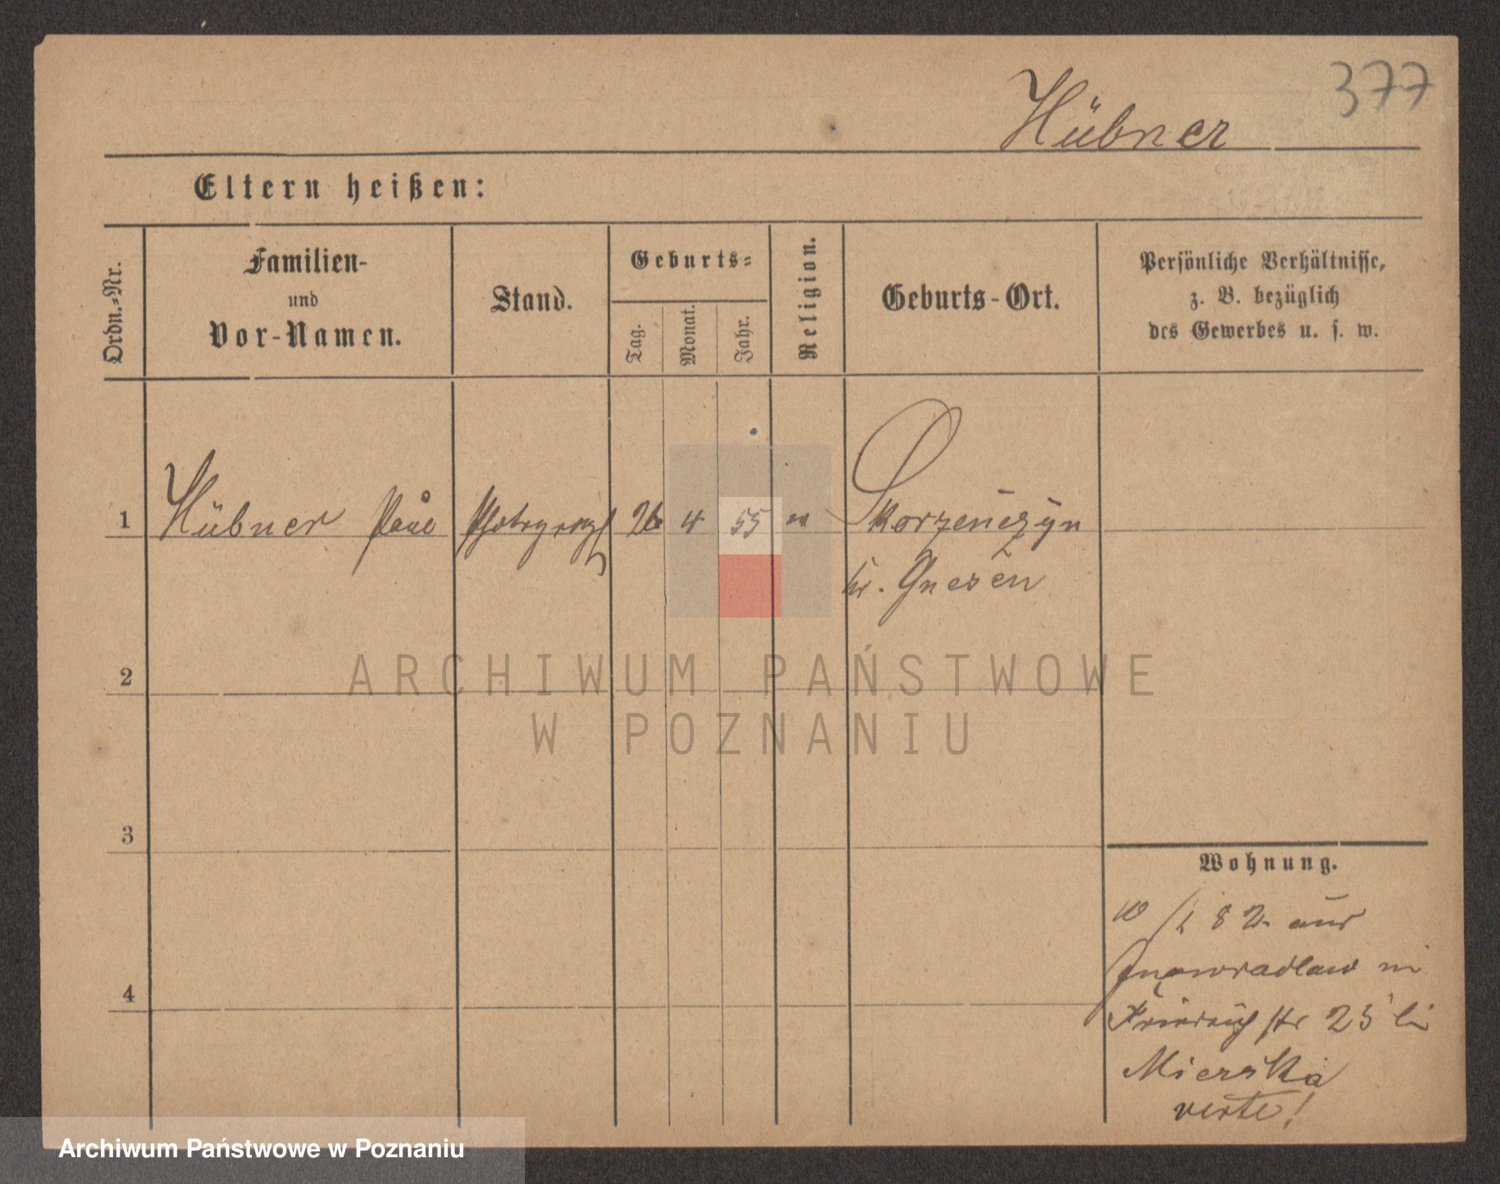 377
Hübner
Eltern heißen:
Ordn.-Nr.
Familien-
und
Vor-Namen.
Stand.
Geburts-
Tag.
Monat.
Jahr.
Religion.
Geburts-Ort.
Persönliche Verhältnisse,
z. B. bezüglich
des Gewerbes u. s. w.
1 Hübner Paul Photograph 26 4 55 Skorzenczyn
kr. Gnesen
2
3
4
Wohnung.
10/1 82 aus
Inowradlaw in
Friedrich str 25 bei
Mierska
verte!
ARCHIWUM PAŃSTWOWE
W POZNANIU
Archiwum Państwowe w Poznaniu